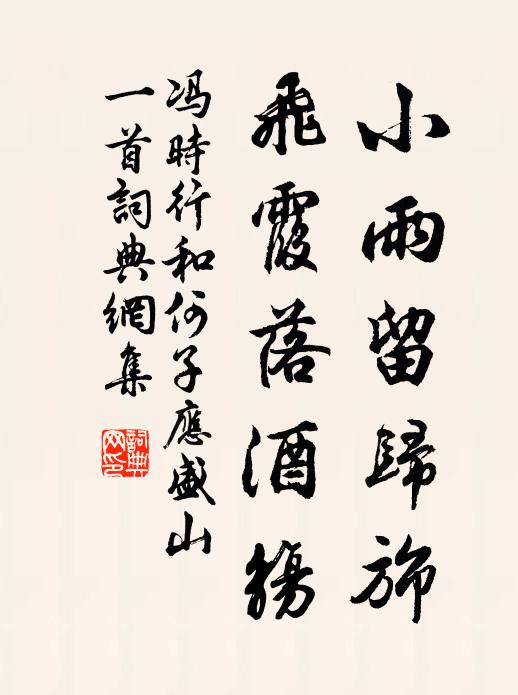 小雨留歸旆
飛霞落酒觴
馮時行和何子應盛山
一首詞典網集
詞典網印